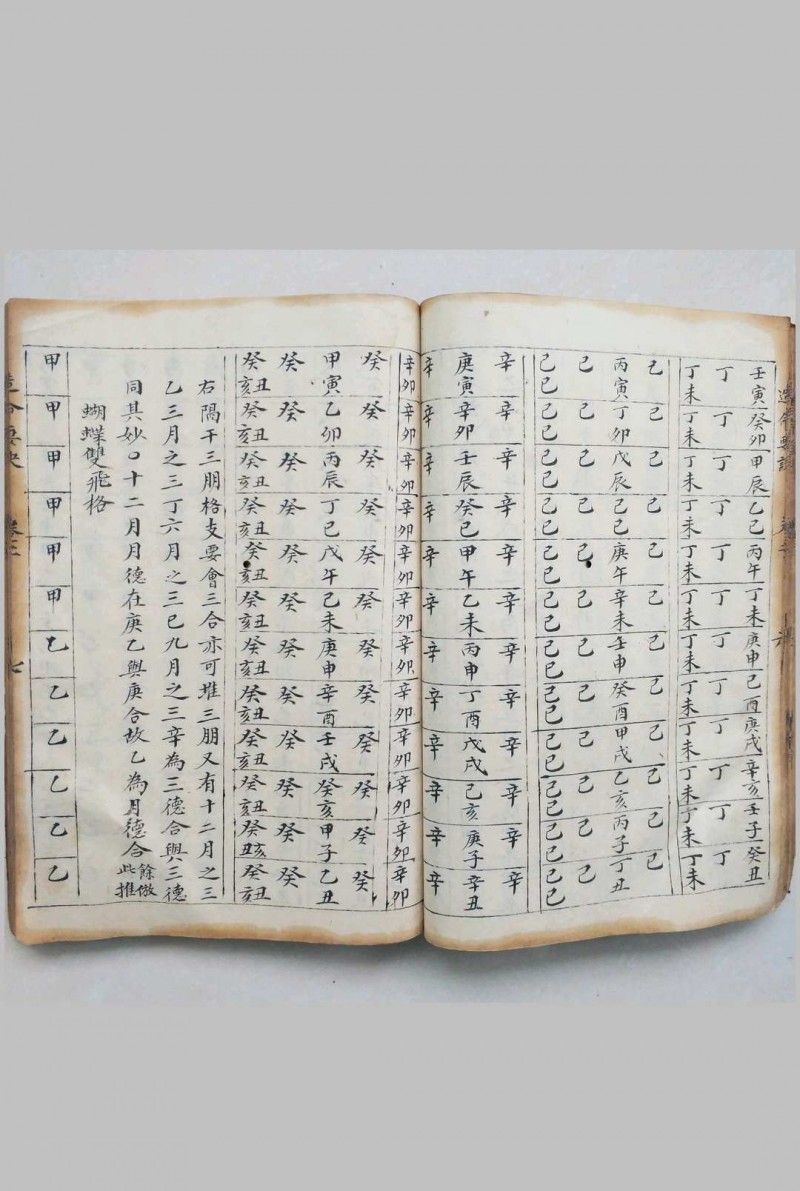 造命要訣
壬寅 癸卯 甲辰 乙巳 丙午 丁未 庚申 己酉 庚戌 辛亥 壬子 癸丑
丁 丁 丁 丁 丁 丁 丁 丁 丁 丁 丁 丁
丁未 丁未 丁未 丁未 丁未 丁未 丁未 丁未 丁未 丁未 丁未 丁未
己 己 己 己 己 己 己 己 己 己 己 己
丙寅 丁卯 戊辰 己巳 庚午 辛未 壬申 癸酉 甲戌 乙亥 丙子 丁丑
己 己 己 己 己 己 己 己 己 己 己 己
己巳 己巳 己巳 己巳 己巳 己巳 己巳 己巳 己巳 己巳 己巳 己巳
辛 辛 辛 辛 辛 辛 辛 辛 辛 辛 辛 辛
庚寅 辛卯 壬辰 癸巳 甲午 乙未 丙申 丁酉 戊戌 己亥 庚子 辛丑
辛 辛 辛 辛 辛 辛 辛 辛 辛 辛 辛 辛
辛卯 辛卯 辛卯 辛卯 辛卯 辛卯 辛卯 辛卯 辛卯 辛卯 辛卯 辛卯
癸 癸 癸 癸 癸 癸 癸 癸 癸 癸 癸 癸
甲寅 乙卯 丙辰 丁巳 戊午 己未 庚申 辛酉 壬戌 癸亥 甲子 乙丑
癸 癸 癸 癸 癸 癸 癸 癸 癸 癸 癸 癸
癸丑亥 癸丑亥 癸丑亥 癸丑亥 癸丑亥 癸丑亥 癸丑亥 癸丑亥 癸丑亥 癸丑亥 癸亥丑 癸丑亥
右隔干三朋格支要會三合亦可堆三朋又有十二月之三
乙三月之三丁六月之三巳九月之三辛為三德合與三德
同其妙〇十二月月德在庚乙與庚合故乙為月德合餘倣此推
蝴蝶雙飛格
甲 甲 甲 甲 甲 甲 乙 乙 乙 乙 乙 乙
卷三
七